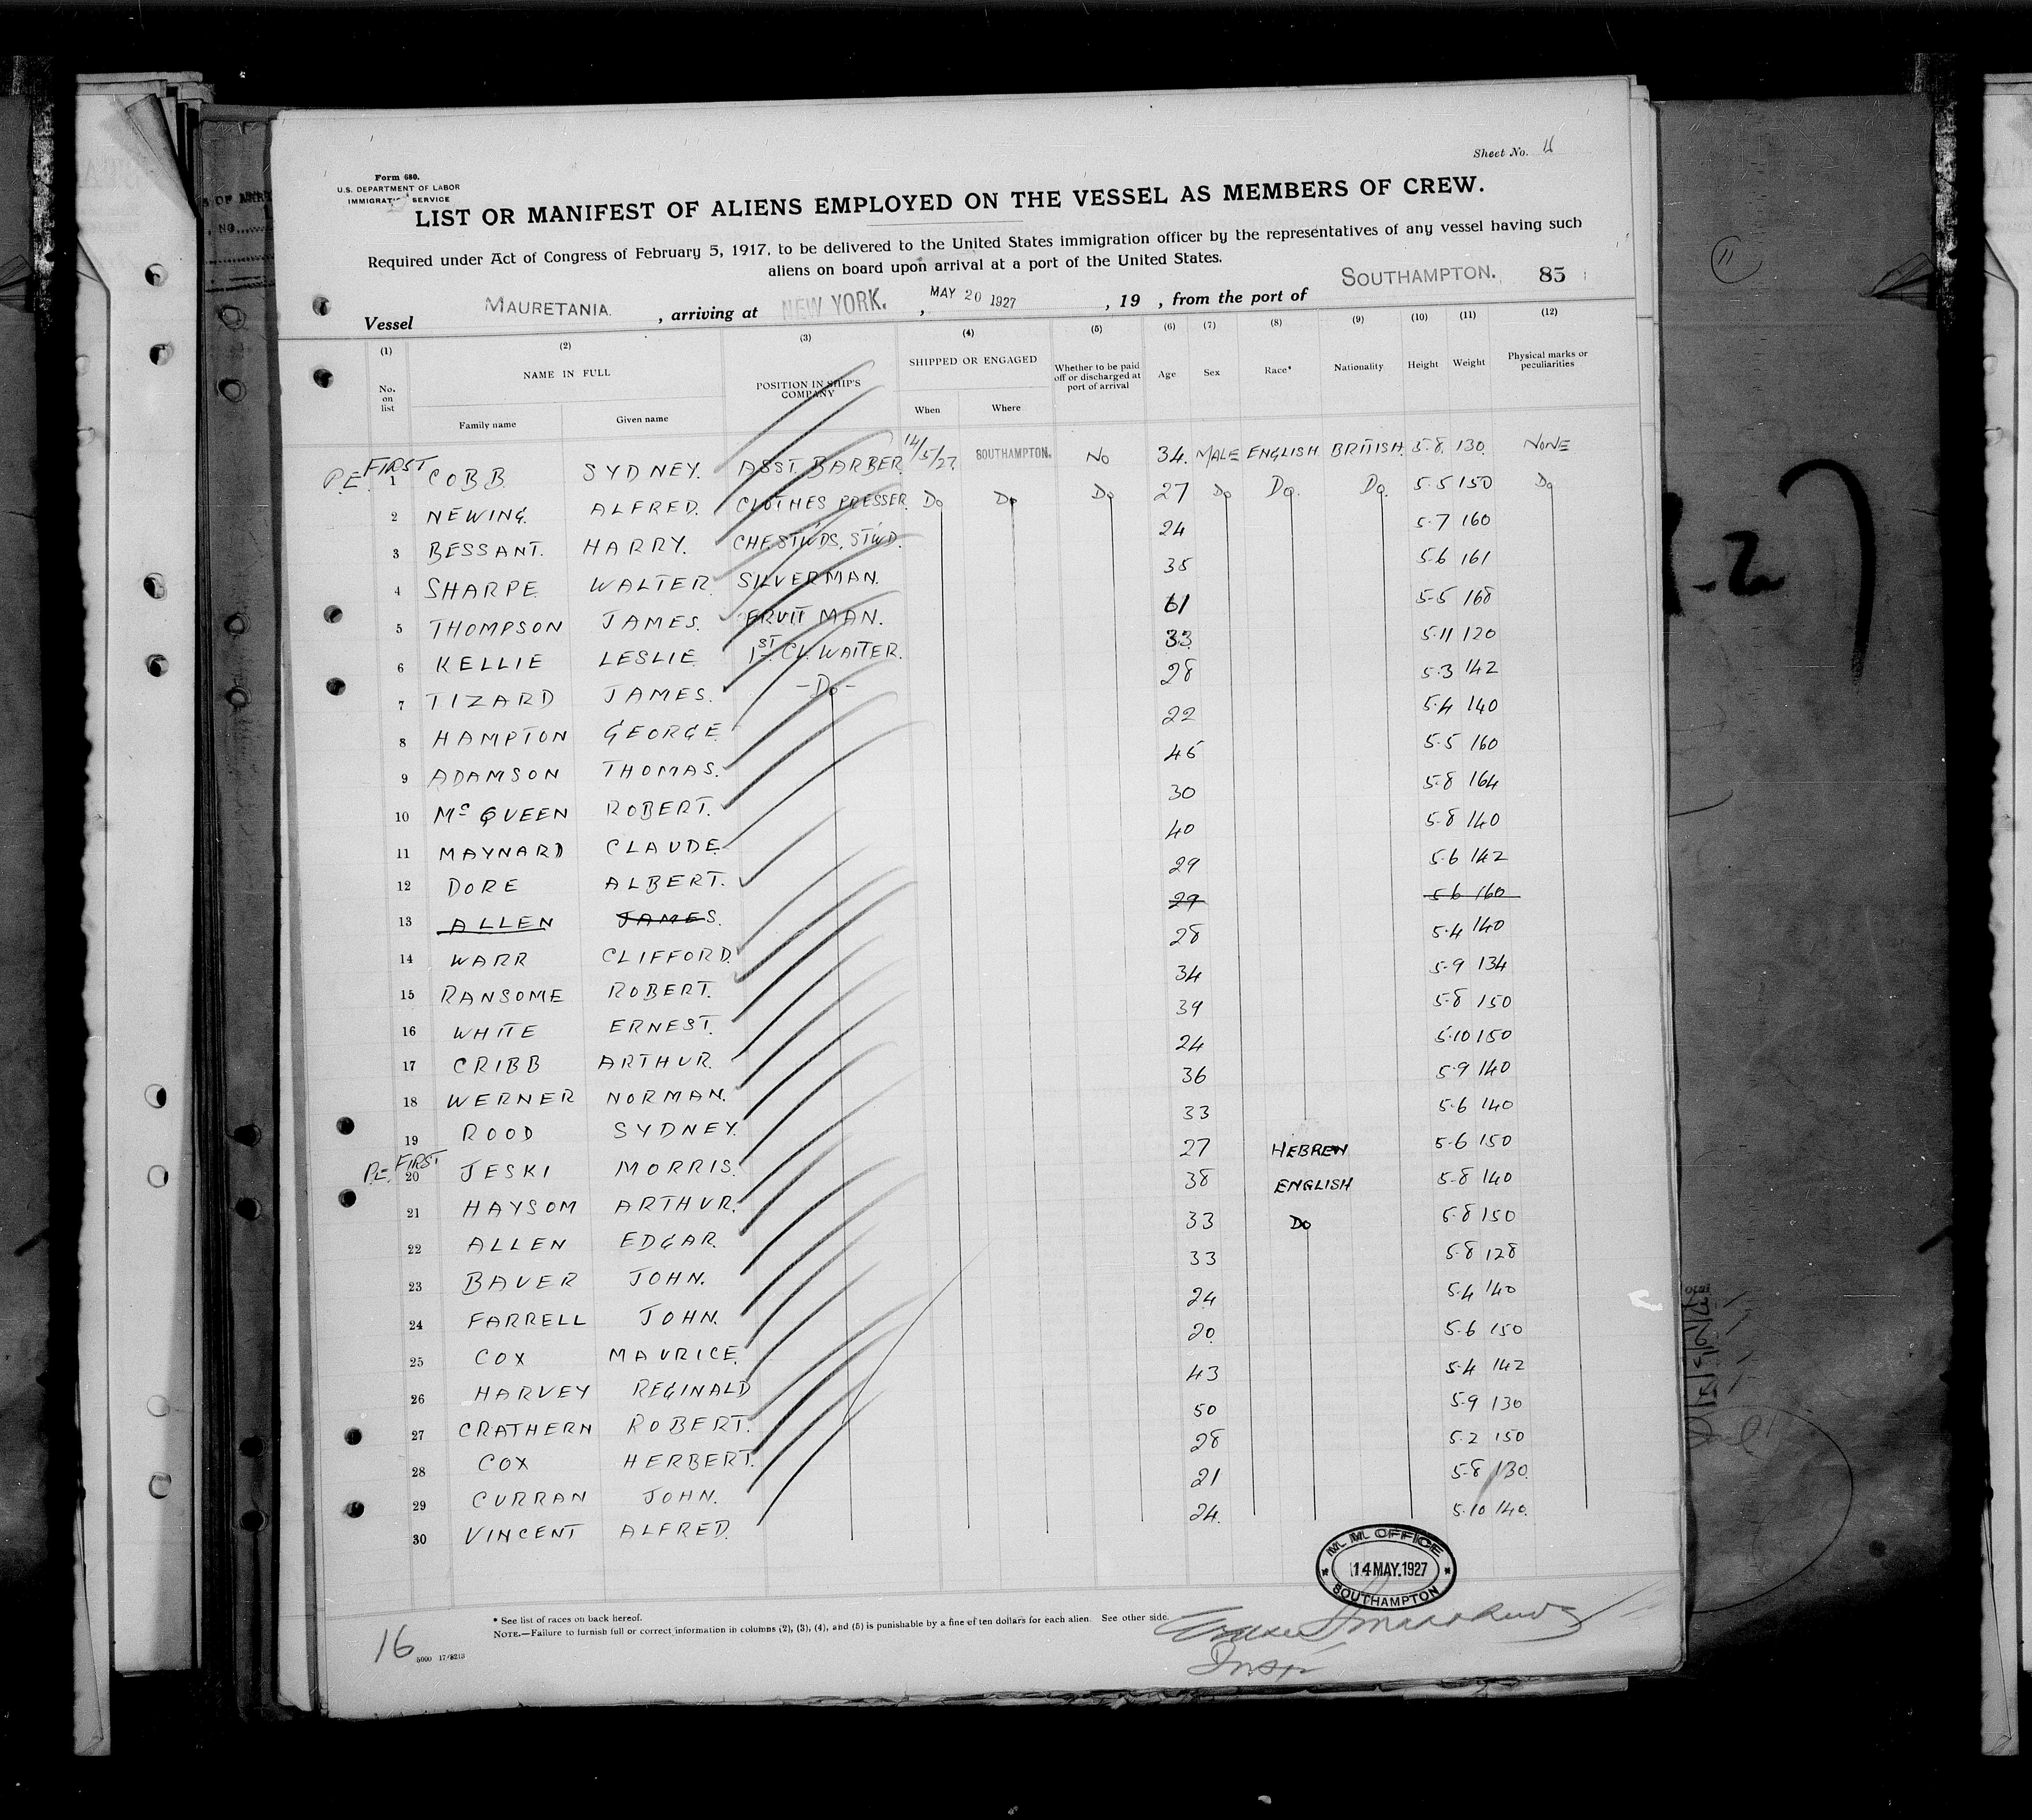 Sheet No.
Form 680.
U.S. DEPARTMENT OF LABOR
IMMIGRATION SERVICE
LIST OR MANIFEST OF ALIENS EMPLOYED ON THE VESSEL AS MEMBERS OF CREW.
Required under Act of Congress of February 5, 1917, to be delivered to the United States immigration officer by the representatives of any vessel having such
aliens on board upon arrival at a port of the United States.
Vessel MAURETANIA. , arriving at NEW YORK. , MAY 20 1927 , 19 , from the port of SOUTHAMPTON. 85
(1) (2) (3) (4) (5) (6) (7) (8) (9) (10) (11) (12)
No. on list NAME IN FULL POSITION IN SHIP'S COMPANY SHIPPED OR ENGAGED Whether to be paid off or discharged at port of arrival Age Sex Race* Nationality Height Weight Physical marks or peculiarities
Family name Given name When Where
P.E. FIRST 1 COBB SYDNEY. ASST. BARBER 14/5/27. SOUTHAMPTON. NO 34. MALE ENGLISH BRITISH. 5-8. 130. NONE
2 NEWING. ALFRED. CLOTHES PRESSER. Do Do Do 27 Do Do. Do. 5.5 150 Do
3 BESSANT. HARRY. CH.STWDS. STWD. 24 5.7 160
4 SHARPE WALTER. SILVERMAN. 35 5-6 161
5 THOMPSON JAMES. FRUIT MAN. 61 5-5 168
6 KELLIE LESLIE 1ST CL. WAITER. 33 5.11 120
7 TIZARD JAMES. -Do- 28 5.3 142
8 HAMPTON GEORGE 22 5.4 140
9 ADAMSON THOMAS. 45 5.5 160
10 McQUEEN ROBERT. 30 5-8 164
11 MAYNARD CLAUDE 40 5-8 140
12 DORE ALBERT. 29 5.6 142
13 ALLEN JAMES. 29 5 6 160
14 WARR CLIFFORD. 28 5.4 140
15 RANSOME ROBERT. 34 5-9 134
16 WHITE ERNEST. 39 5-8 150
17 CRIBB ARTHUR. 24 5.10 150
18 WERNER NORMAN. 36 5.9 140
19 ROOD SYDNEY. 33 5.6 140
P.E. FIRST 20 JESKI MORRIS. 27 HEBREW 5-6 150
21 HAYSOM ARTHUR. 38 ENGLISH 5-8 140
22 ALLEN EDGAR. 33 Do 5.8 150
23 BAUER JOHN. 33 5-8 128
24 FARRELL JOHN. 24 5.4 140
25 COX MAURICE. 20. 5.6 150
26 HARVEY REGINALD 43 5-4 142
27 CRATHERN ROBERT. 50 5-9 130
28 COX HERBERT. 28 5.2 150
29 CURRAN JOHN. 21 5-8 130.
30 VINCENT ALFRED. 24. 5.10 140.
M. M. OFFICE
14 MAY. 1927
SOUTHAMPTON
* See list of races on back hereof.
NOTE.—Failure to furnish full or correct information in columns (2), (3), (4), and (5) is punishable by a fine of ten dollars for each alien. See other side.
16